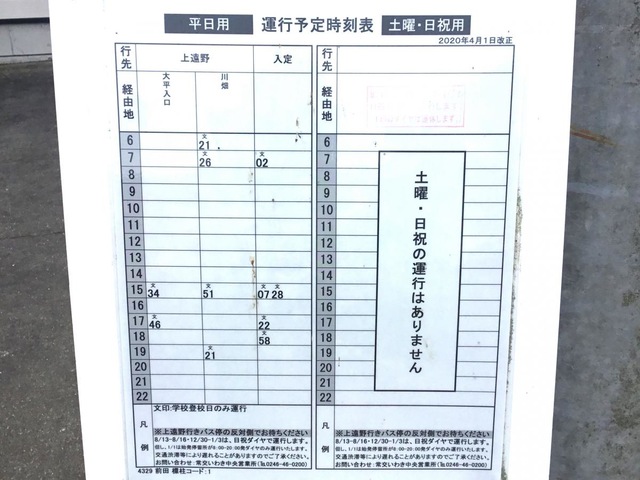 平日用 運行予定時刻表 土曜・日祝用
2020年4月1日改正
行先 上遠野 入定 行先
経由地 大平入口 川畑 経由地
6 文21 6
7 文26 文02 7
8 8
9 9
10 10
11 11
12 12
13 13
14 14
15 文34 文51 文07 文28 15
16 16
17 文46 文22 17
18 文58 18
19 文21 19
20 20
21 21
22 22
土曜・日祝の運行はありません
凡例
文印:学校登校日のみ運行
※上遠野行きバス停の反対側でお待ちください
8/13-8/16・12/30-1/3は、日祝ダイヤで運行します。
但し、1/1は始発停留所が8:00-20:00発ダイヤのみ運行いたします。
交通渋滞等により遅れることがありますのでご了承ください。
お問い合わせ:常交いわき中央営業所(℡0246-46-0200)
凡例
※上遠野行きバス停の反対側でお待ちください
8/13-8/16・12/30-1/3は、日祝ダイヤで運行します。
但し、1/1は始発停留所が8:00-20:00発ダイヤのみ運行いたします。
交通渋滞等により遅れることがありますのでご了承ください。
お問い合わせ:常交いわき中央営業所(℡0246-46-0200)
4329 前田 標柱コード:1